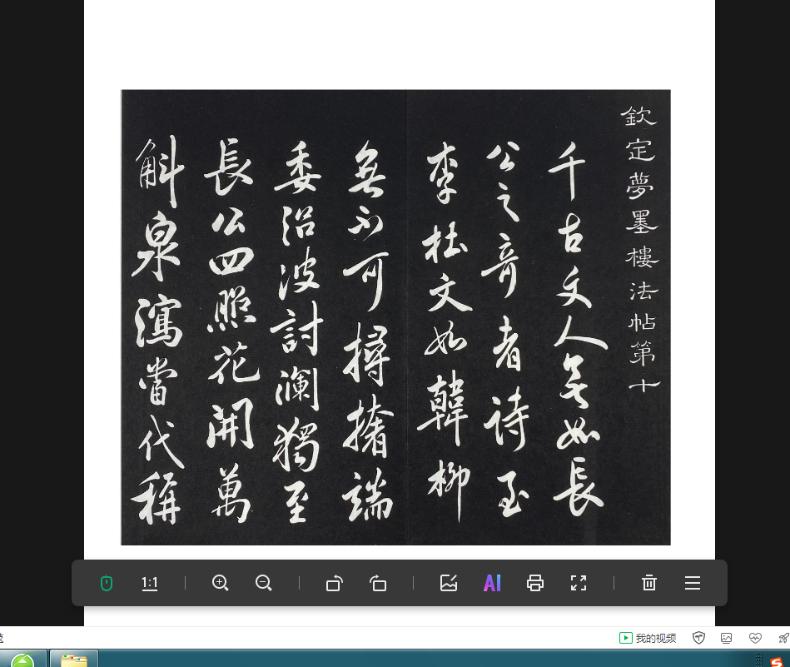 欽定夢墨樓法帖第十
千古文人無如長
公之奇者詩至
李杜文如韓柳
無不可撏撦端
委沿波討瀾獨至
長公四照花開萬
斛泉瀉當代稱
1:1
AI
我的视频